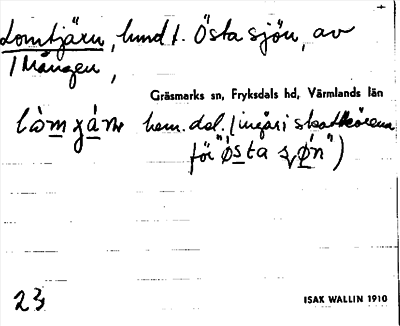 Lomtjärn, hund t. Östa sjön, av
/ Mången,
Gräsmarks sn, Fryksdals hd, Värmlands län
hem. dal. (ingår i
för "østa ʂøn")
23
ISAK WALLIN 1910